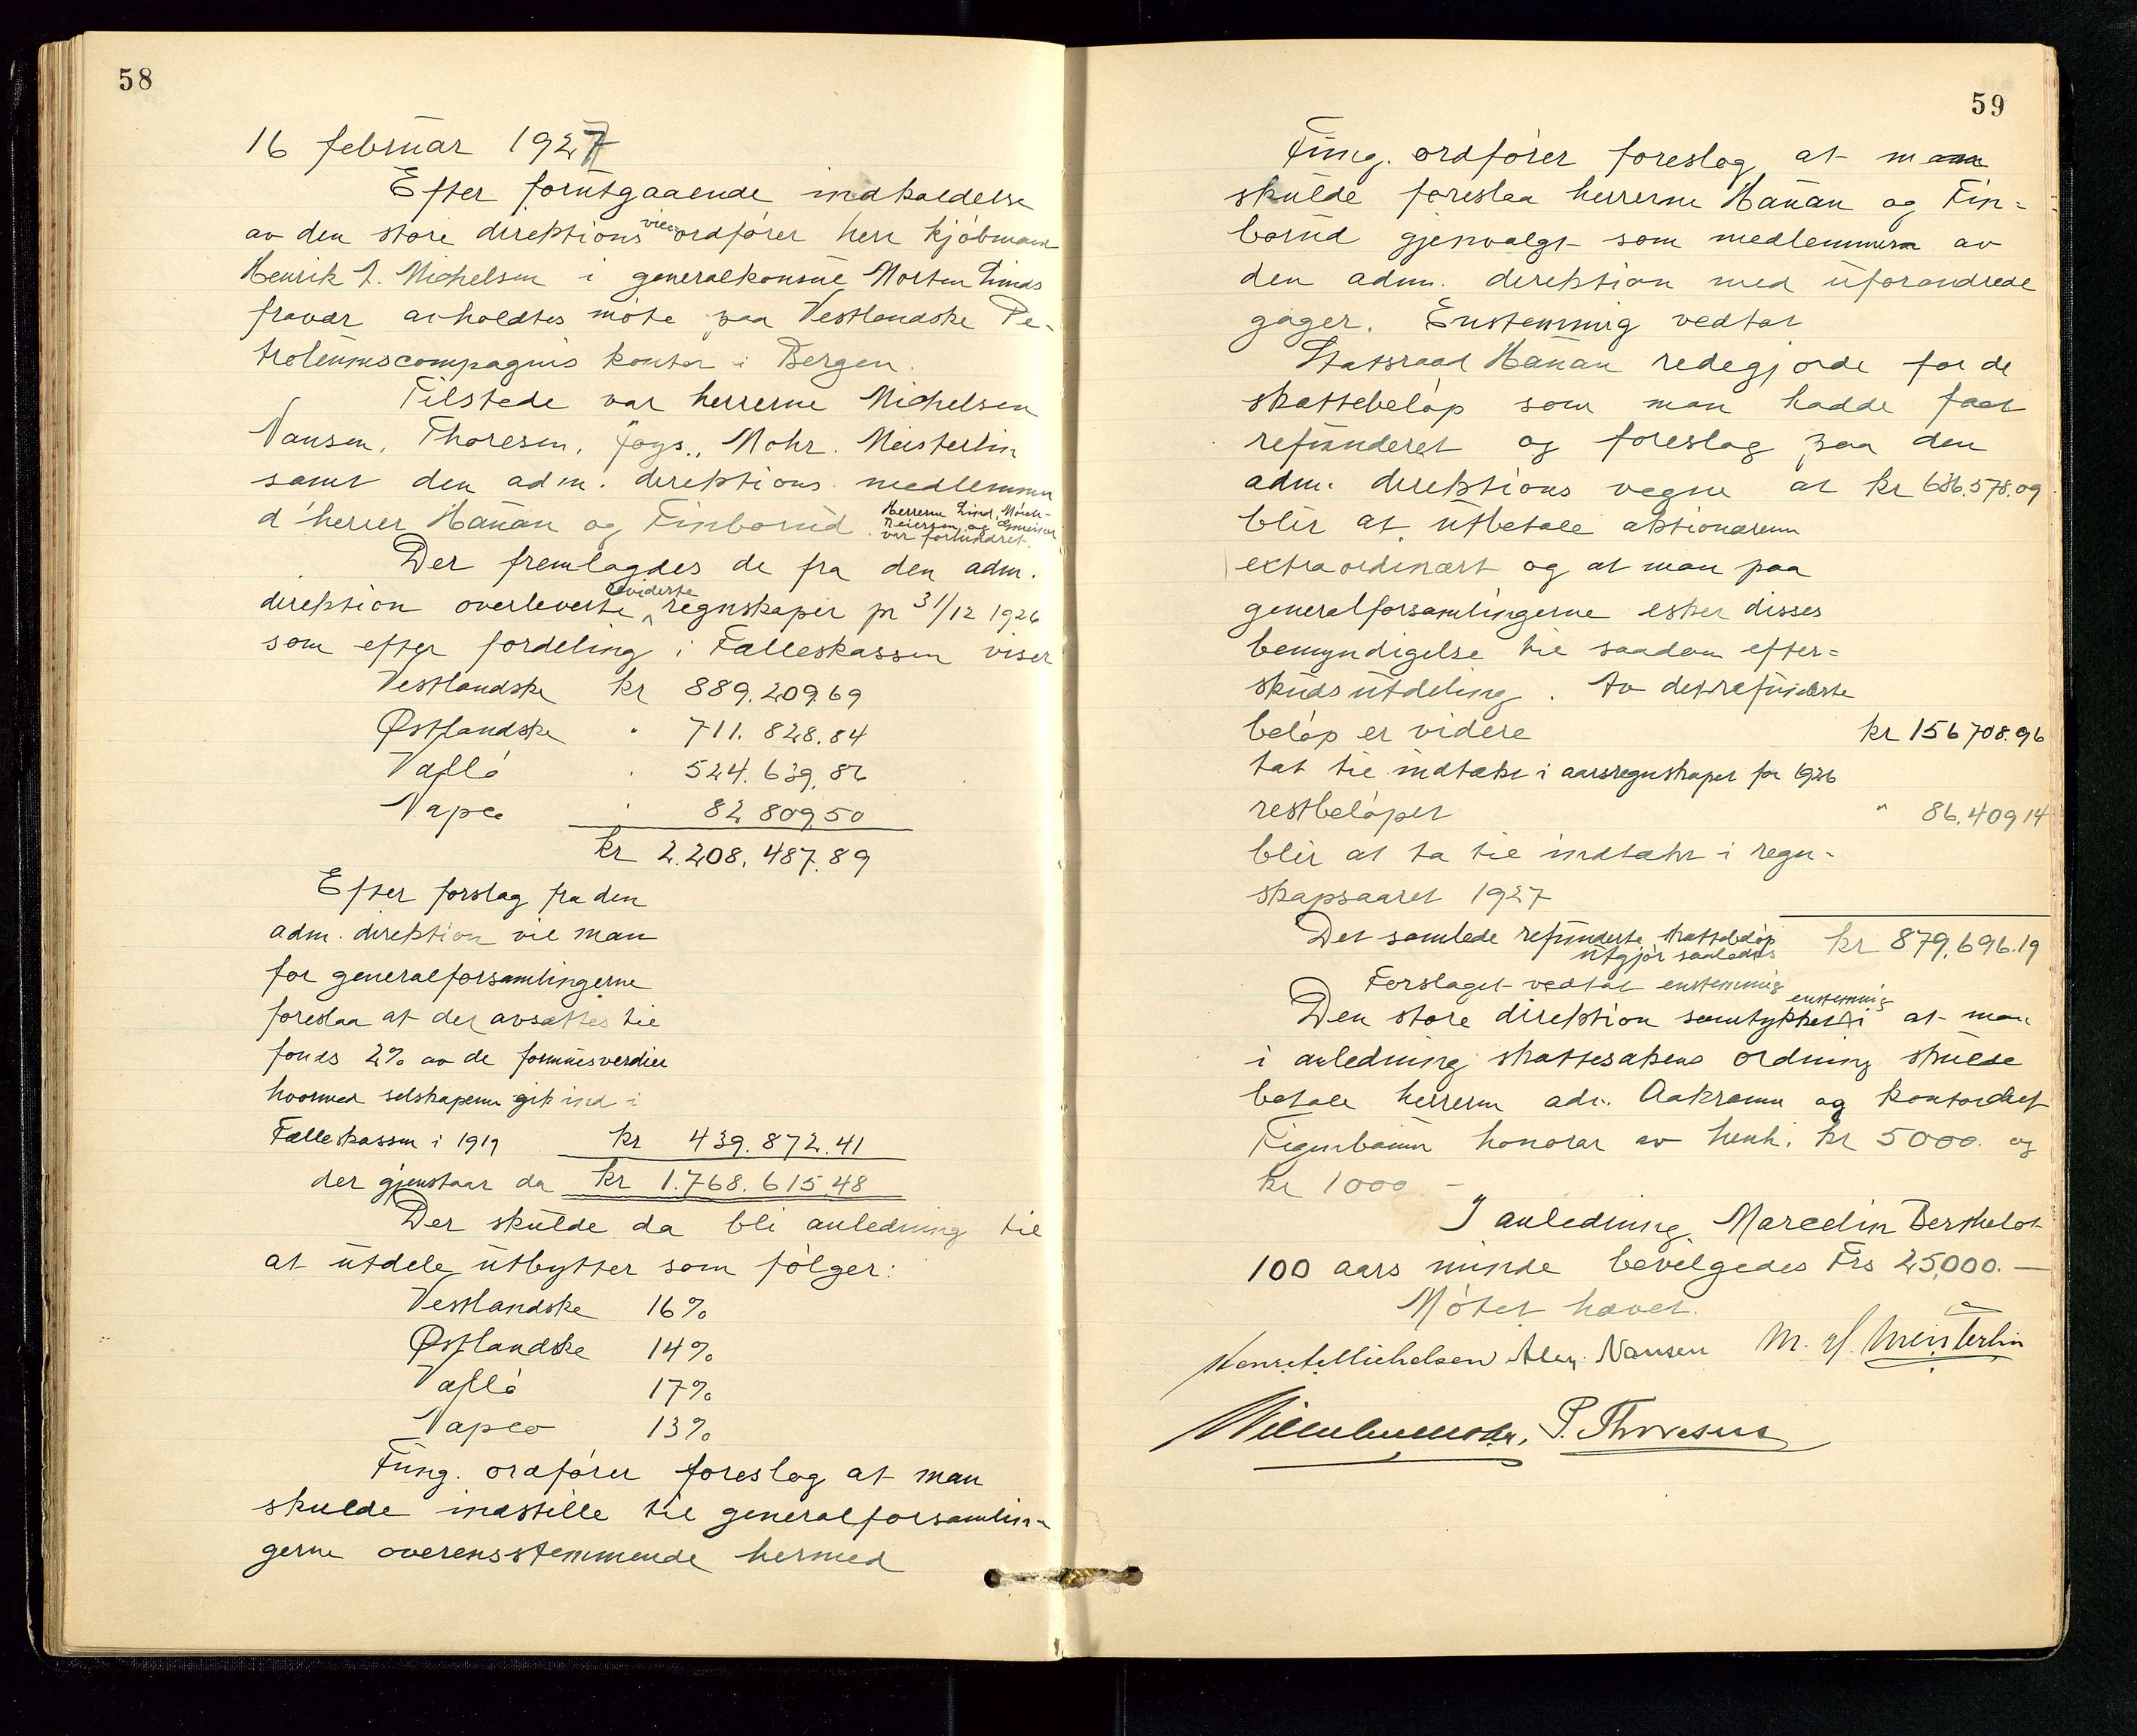 58
16 februar 1927
Efter forutgaaende indkaldelse
av den store direktions viceordfører herr kjøbmand
Henrik J. Michelsen i generalkonsul Morten Linds
fravær avholdtes møte paa Vestlandske Pe-
troleumscompagnis kontor i Bergen.
Tilstede var herrerne Michelsen
Nansen, Thoresen, Joys., Mohr. Meisterlin
samt den adm. direktions medlemmer
d'herrer Hanan og Finborud. Herrerne Lind, Mørch-
Reiersen og
var forhindret.
Der fremlagdes de fra den adm.
direktion overleverte reviderte regnskaper pr 31/12 1926
som efter fordeling i Fælleskassen viser
Vestlandske kr 889.209.69
Østlandske " 711.828.84
Vallø " 524.639.86
Napco " 82 809,50
kr 2.208.487.89
Efter forslag fra den
adm. direktion vil man
for generalforsamlingerne
foreslaa at der avsættes til
fonds 2% av de formuesverdier
hvormed selskaperne gik ind i
Fælleskassen i 1919 kr 439.872.41
der gjenstaar da kr 1.768.615,48
Der skulde da bli anledning til
at utdele utbytter som følger:
Vestlandske 16%
Østlandske 14%
Vallø 17%
Napco 13%
Fung. ordfører foreslog at man
skulde indstille til generalforsamlin-
gerne overensstemmende hermed
59
Fung. ordfører foreslog at man
skulde foreslaa herrerne Hanan og Fin-
borud gjenvalgt som medlemmer av
den adm. direktion med uforandrede
gager. Enstemmig vedtat
Statsraad Hanan redegjorde for de
skattebeløp som man hadde faat
refunderet og foreslog paa den
adm. direktions vegne at kr 636.578.09
blir at utbetale aktionærerne
extraordinært og at man paa
generalforsamlingerne esker disses
bemyndigelse til saadan efter-
skudsutdeling. Av det refunderte
beløp er videre kr 156 708.96
tat til indtækt i aarsregnskapet for 1926
restbeløpet " 86.409 14
blir at ta til indtækt i regn-
skapsaaret 1927
Det samlede refunderte skattebeløp
utgjør saaledes kr 879.696.19
Forslaget vedtat enstemmig
Den store direktion samtykket enstemmig i at man
i anledning skattesakens ordning skulde
betale herrerne adv. Aakrann og kontorchef
Figenbaum honorar av henh. kr 5000. og
kr 1000 –
I anledning Marcelin Berthelot
100 aars minde bevilgedes Frs 25,000.—
Møtet hævet.
Henrik J Michelsen Alex. Nansen M. H. Meisterlin
Wilhelm Mohr, P. Thoresen